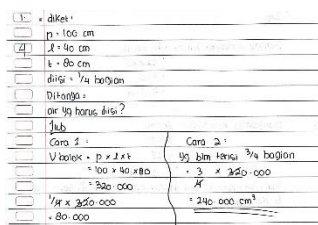 1. diket :
p = 100 cm
4 l = 40 cm
t = 80 cm
diisi = 1/4 bagian
Ditanya =
air yg harus diisi?
Jwb
Cara 1 :
V balok = p x l x t
= 100 x 40 x 80
= 320.000
1/4 x 320.000
= 80.000
Cara 2 :
yg blm terisi 3/4 bagian
= 3 x 320.000
4
= 240.000 cm³